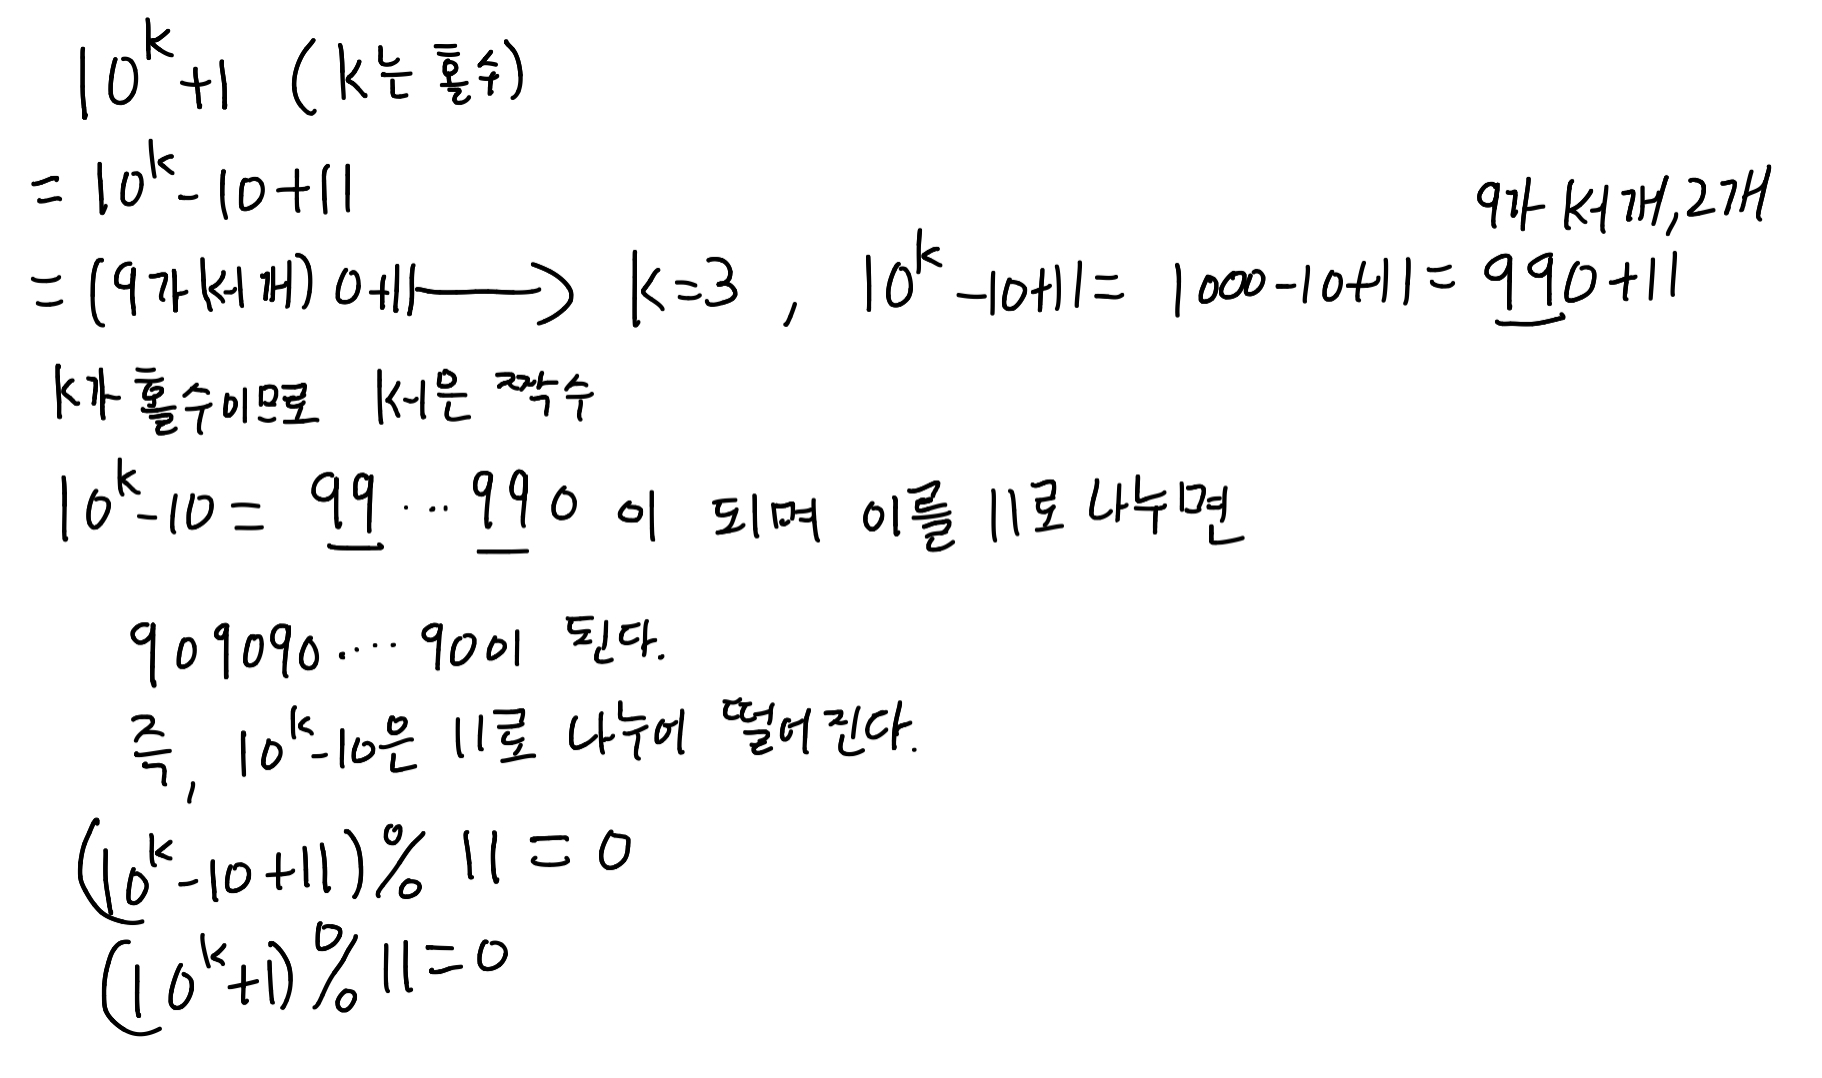 10^k+1 (k는 홀수)
= 10^k-10+11
9가 k-1개, 2개
= (9가 k-1개) 0+11 → k=3, 10^k-10+11 = 1000-10+11 = 990+11
k가 홀수이므로 k-1은 짝수
10^k-10 = 99...990 이 되며 이를 11로 나누면
909090....90이 된다.
즉, 10^k-10은 11로 나누어 떨어진다.
(10^k-10+11)% 11=0
(10^k+1)% 11=0